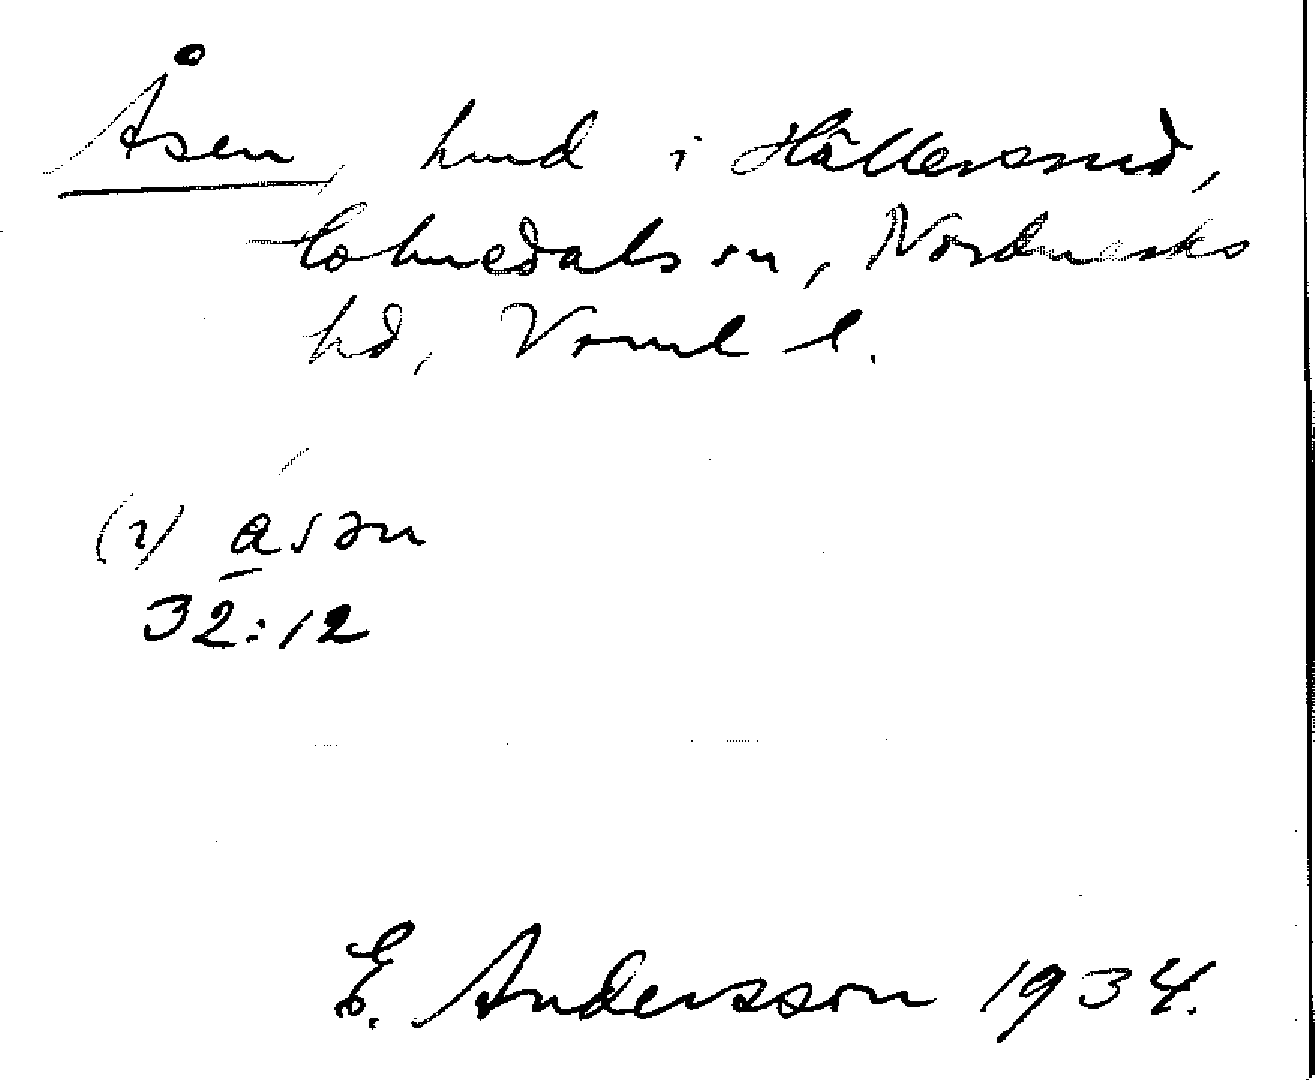 Åsen, hmd i Hällersrud,
Holmedals sn, Nordmarks
hd, Vrml l.
(2) åsən
32:12
E. Andersson 1934.